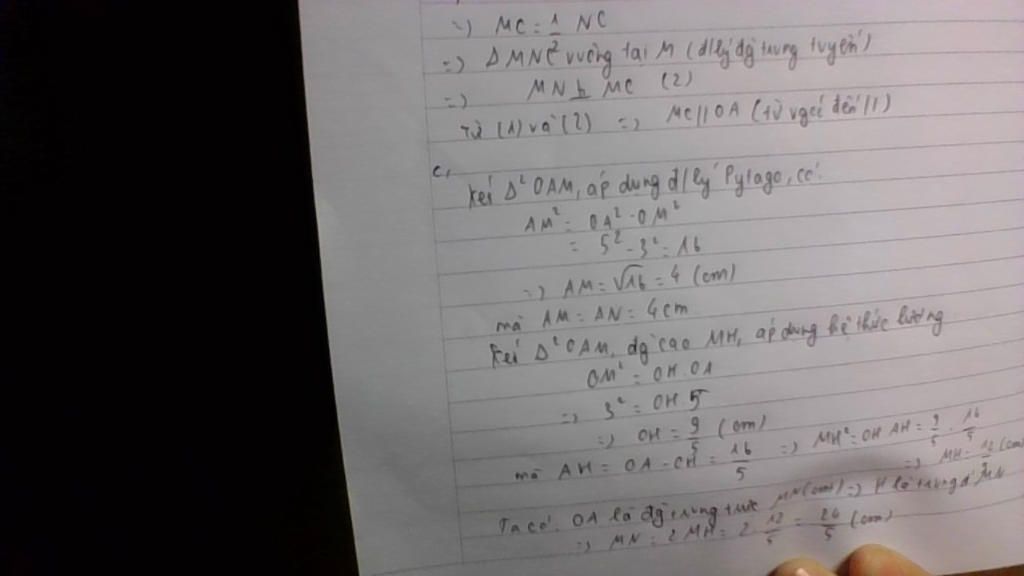 =) MC = 1 NC
=) ΔMNC² vuông tại M (đ/lý đg trung tuyến)
=) MN ⊥ MC (2)
Từ (1) và (2) =) MC // OA (từ vgóc đến //)
c,
Xét Δ² OAM, áp dụng đ/lý Pytago, có:
AM² = OA² - OM²
= 5² - 3² = 16
=) AM = √16 = 4 (cm)
mà AM = AN = 4cm
Xét Δ² OAM, đg cao MH, áp dụng hệ thức lượng
OM² = OH.OA
=) 3² = OH.5
=) OH = 9/5 (cm)
mà AH = OA - OH = 16/5 =) MH² = OH.AH = 9/5 . 16/5
=) MH = 12/5 (cm)
Ta có: OA là đg trung trực MN (cmt) =) H là trung đ' MN
=) MN = 2 MH = 2 . 12/5 = 24/5 (cm)